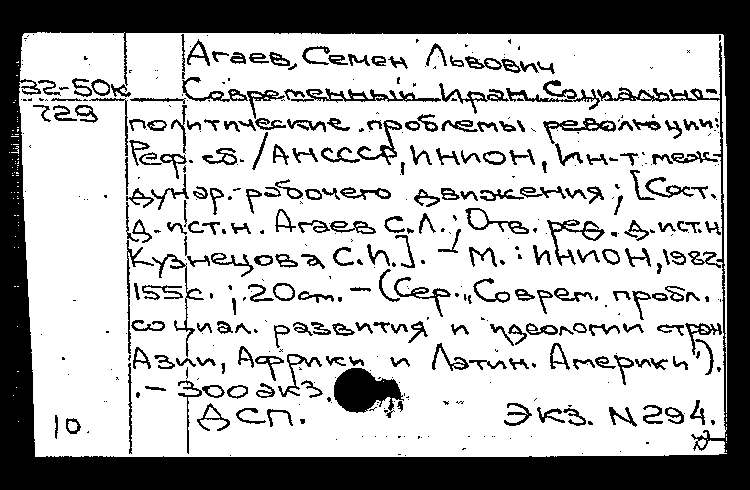 Агаев, Семен Львович
32-50к Современный Иран. Социально-
729
политические проблемы революции:
Реф. сб. / АН СССР, ИНИОН, Ин-т меж-
дунар. рабочего движения; [Сост.
д.ист.н. Агаев С.Л.; Отв. ред. д.ист.н
Кузнецова С.И.]. – М.: ИНИОН, 1982.
155с.; 20см. – (Сер. „Соврем. пробл.
социал. развития и идеологии стран
Азии, Африки и Латин. Америки").
. – 300 экз.
10 ДСП. Экз. N 294.